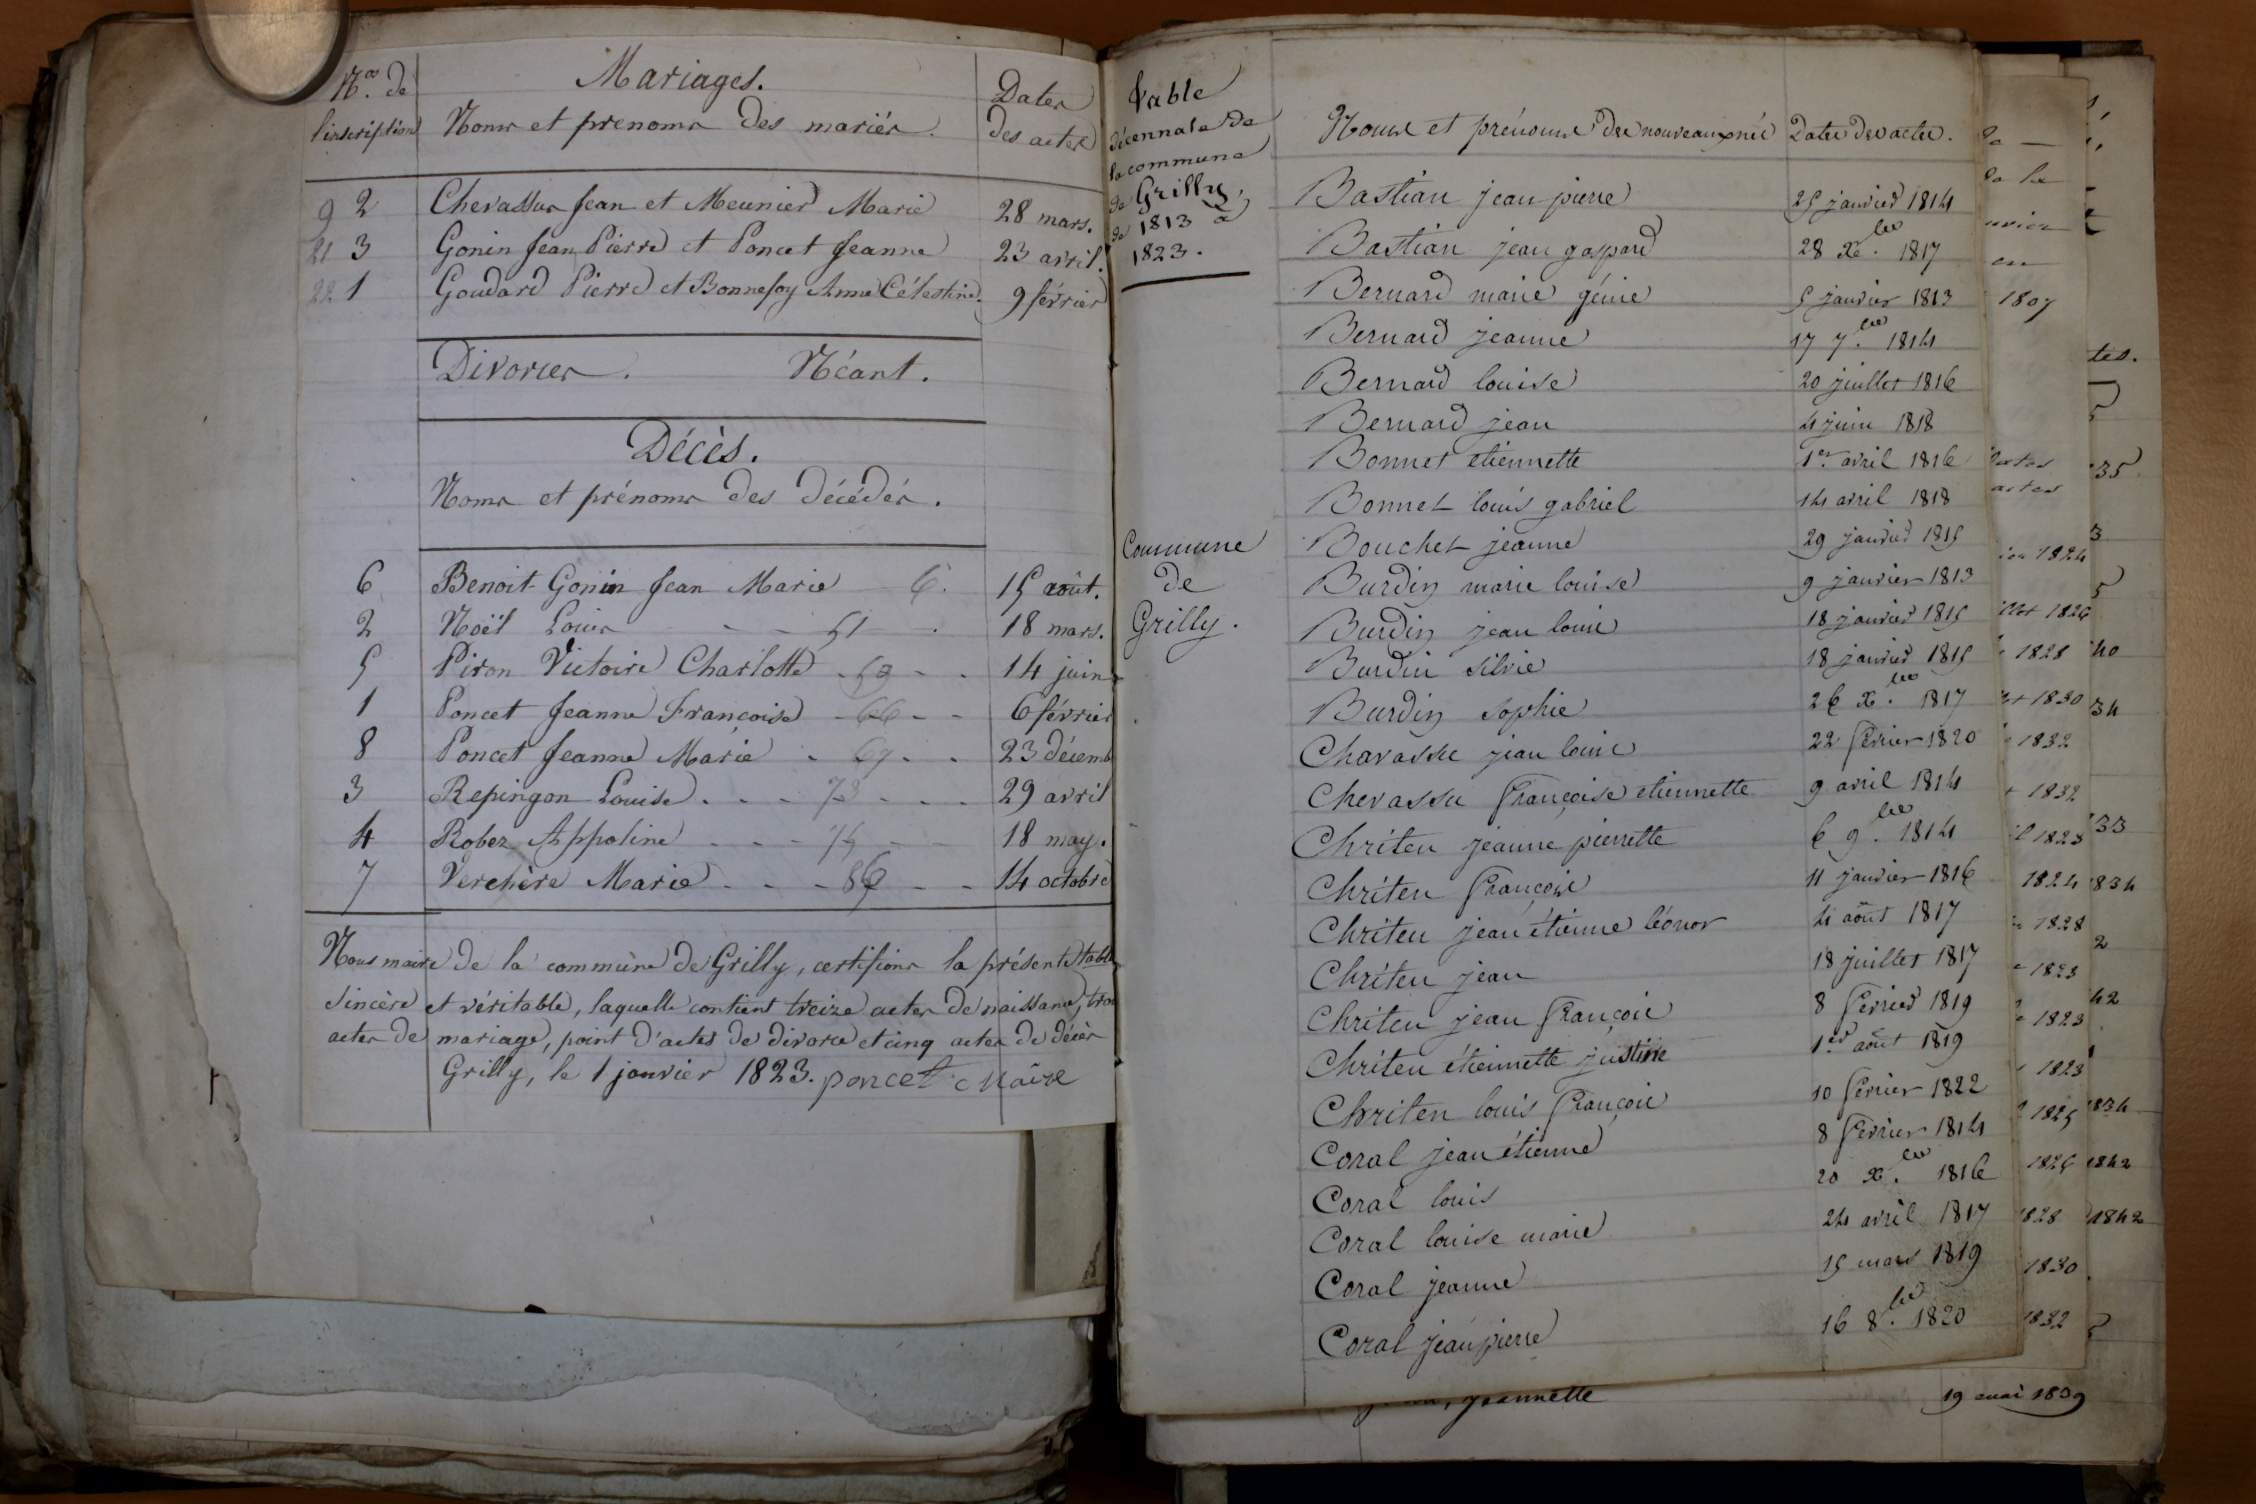 Nos. de
l'inscription
Mariages.
Noms et prenoms des mariés.
Dates
des actes
9 2 Chevassus Jean et Meunier Marie 28 mars.
21 3 Gonin Jean Pierre et Poncet Jeanne 23 avril.
22 1 Goudard Pierre et Bonnefoy Anne Célestine. 9 février
Divorces. Néant.
Décès.
Noms et prénoms des décédés.
6 Benoit-Gonin Jean Marie 6. 15 août.
2 Noël Louis - - 51 - 18 mars.
5 Piron Victoire Charlotte - 59 - - 14 juin
1 Poncet Jeanne Françoise - 66 - - 6 février
8 Poncet Jeanne Marie - 67 - - 23 décemb
3 Repingon Louise - - - 73 - - - 29 avril
4 Robez Appoline - - - 75 - - 18 may.
7 Verchère Marie - - - 86 - - 14 octobre
Nous maire de la commune de Grilly, certifions la présente table
sincère et véritable, laquelle contient treize actes de naissance, trois
actes de mariage, point d'actes de divorce et cinq actes de décès
Grilly, le 1 janvier 1823. poncet Maire
Table
décennale de
la commune
de Grilly,
de 1813 à
1823.
Commune
de
Grilly.
Noms et prénoms des nouveaux nés Dates des actes.
Bastian jean pierre 25 janvier 1814
Bastian jean gaspard 28 xbre. 1817
Bernard marie génie 5 janvier 1813
Bernard jeanne 17 7bre. 1814
Bernard louise 20 juillet 1816
Bernard jean 4 juin 1818
Bonnet etiennette 1er avril 1816
Bonnet louis gabriel 14 avril 1818
Bouchet jeanne 29 janvier 1815
Burdin marie louise 9 janvier 1813
Burdin jean louis 18 janvier 1815
Burdin silvie 18 janvier 1815
Burdin sophie 26 xbre. 1817
Chavassu jean louis 22 fevrier 1820
Chevassu françoise etiennette 9 avril 1814
Chriten jeanne pierrette 6 9bre. 1814
Chriten françois 11 janvier 1816
Chriten jean étienne léonor 4 août 1817
Chriten jean 18 juillet 1817
Chriten jean françois 8 fevrier 1819
Chriten étiennette justine 1er août 1819
Chriten louis françois 10 fevrier 1822
Coral jean étienne 8 fevrier 1814
Coral louis 20 xbre. 1816
Coral louise marie 24 avril 1817
Coral jeanne 15 mars 1819
Coral jean pierre 16 8bre. 1820
1807
1824
1826
1828
1830
1832
1832
1823
1824
1828
1823
1823
1823
1825
1826
1828
1830
1832
tes.
35
40
34
33
1834
42
1834
1842
1842
jeannette 19 mai 1839